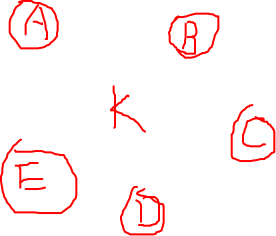 A
B
K
C
E
D